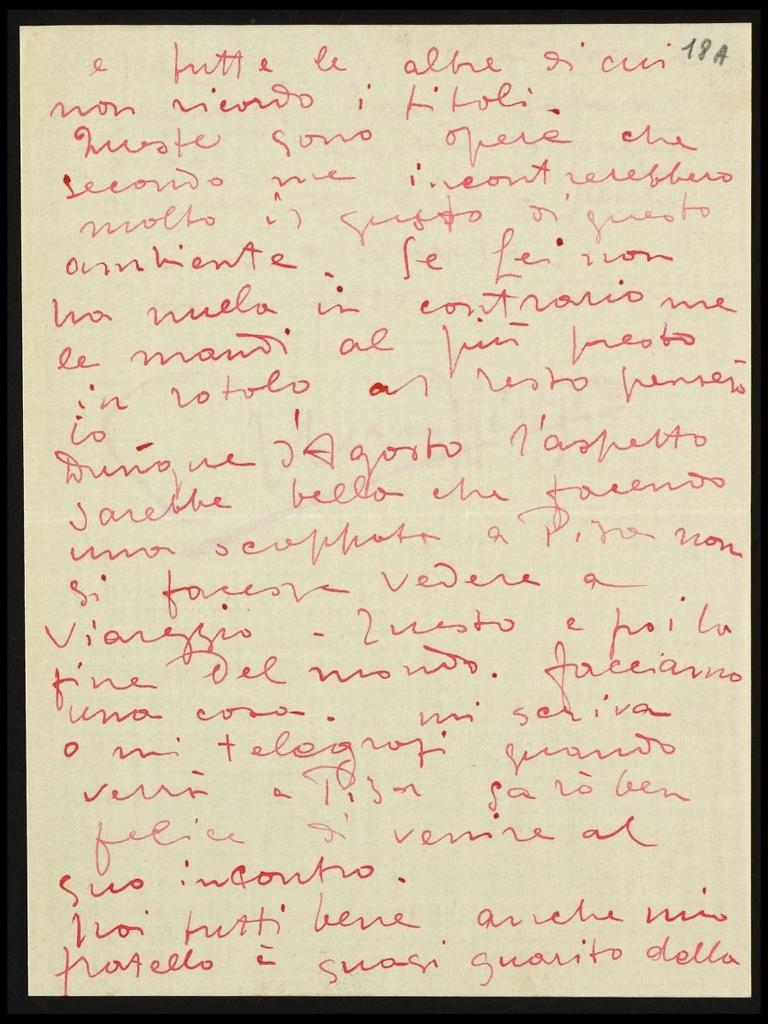 18A
e tutte le altre di cui
non ricordo i titoli.
Queste sono opere che
secondo me incontrerebbero
molto il gusto di questo
ambiente. Se Lei non
ha nulla in contrario me
le mandi al più presto
in rotolo al resto penserò
io
Dunque d'Agosto l'aspetto
sarebbe bella che facendo
una scappata a Pisa non
si facesse vedere a
Viareggio - Questo e poi la
fine del mondo. facciamo
una cosa. mi scriva
o mi telegrafi quando
verrà a Pisa sarò ben
felice di venire al
suo incontro.
Noi tutti bene anche mio
fratello è quasi guarito della